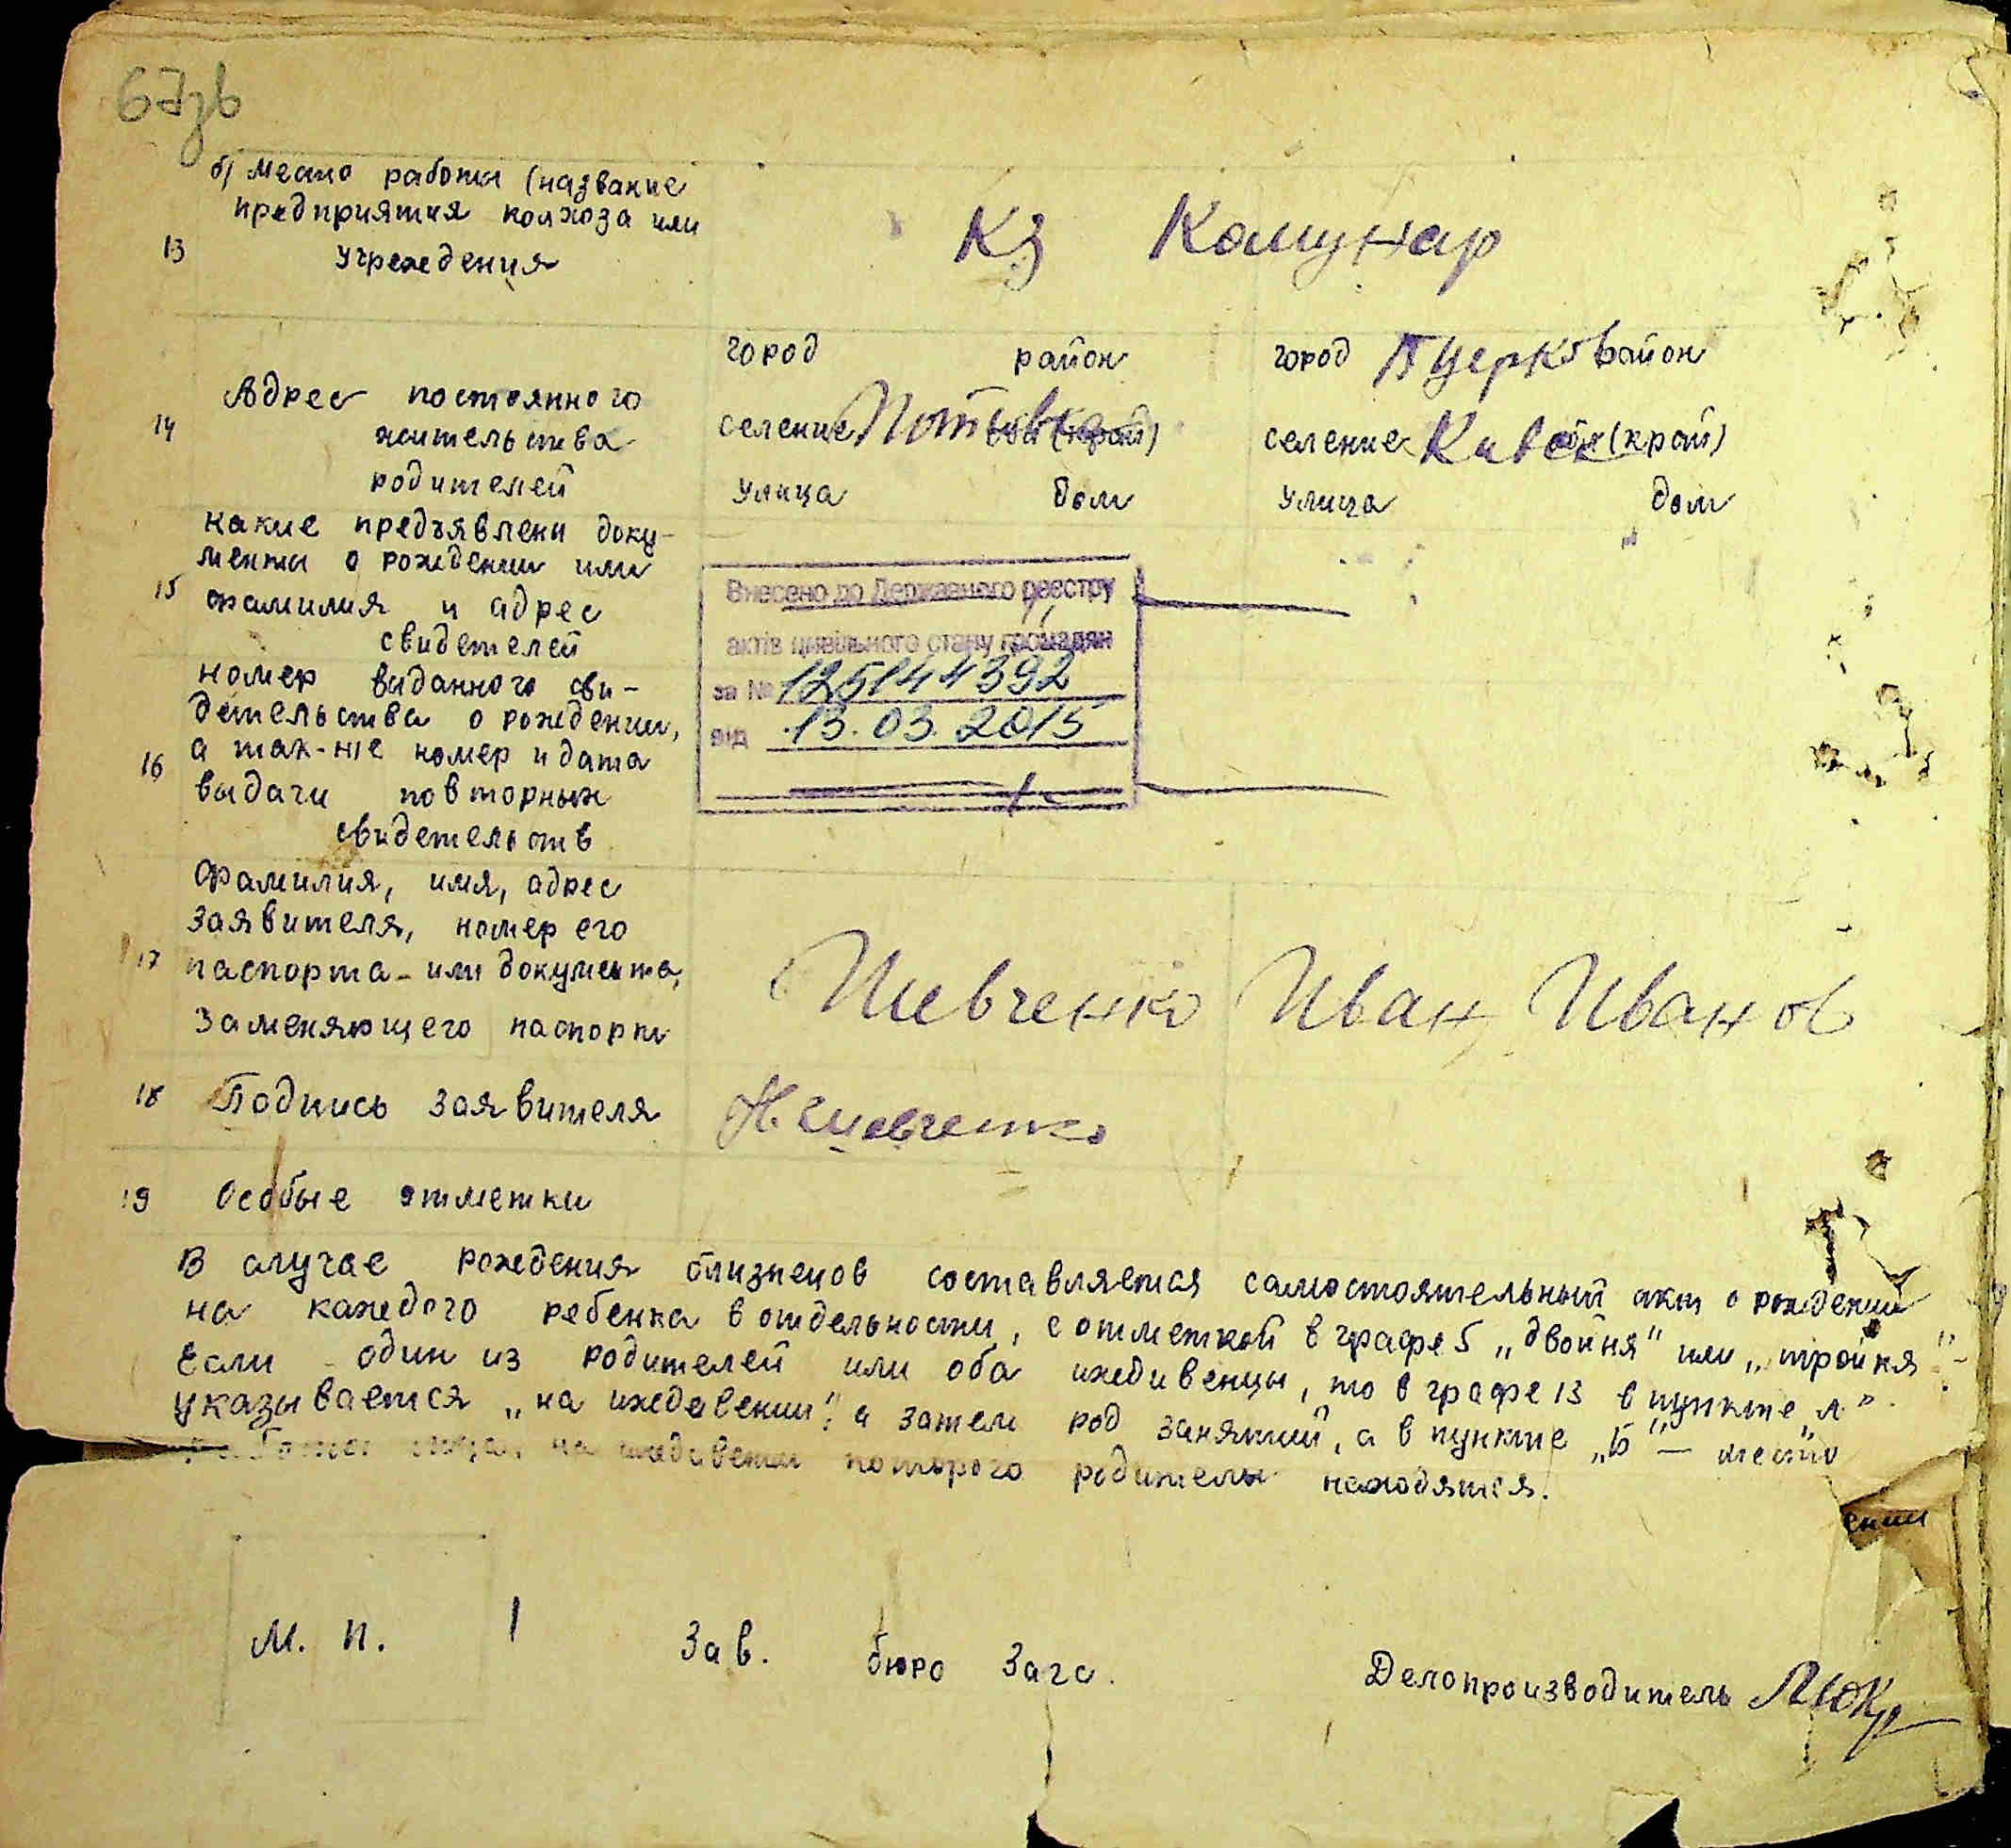 67зв
б) Место работы (название
предприятия колхоза или
13 учреждения
Кз Комунар
14 Адрес постоянного
жительства
родителей
город район
селение (край)
улица дом
город Б Церков район
селение Киевск (край)
улица дом
15 какие предъявлены доку-
менты о рождении или
фамилия и адрес
свидетелей
Внесено до Державного реєстру
актів цивільного стану громадян
за № 125144392
від 13.03.2015
16 номер выданного сви-
детельства о рождении,
а так-же номер и дата
выдачи повторных
свидетельств
17 Фамилия, имя, адрес
заявителя, номер его
паспорта - или документа,
заменяющего паспорт
Шевченко Иван Иванов
18 Подпись заявителя
Шевченко
19 Особые отметки
В случае рождения близнецов составляется самостоятельный акт о рождении
на каждого ребенка в отдельности, с отметкой в графе 5 „двойня" или „тройня"-
Если один из родителей или оба иждивенцы, то в графе 13 в пункте „А".
указывается „на иждевении", а затем род занятий, а в пункте „Б" — место
на иждивении которого родители находятся.
ении
М. П. Зав. бюро Загс. Делопроизводитель